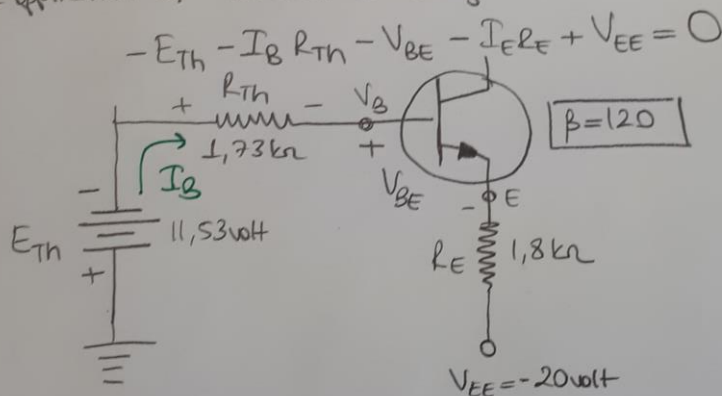 -E_Th - I_B R_Th - V_BE - I_E R_E + V_EE = 0
+ R_Th - V_B
β=120
1,73kΩ
+
I_B
V_BE
-
- E
E_Th 11,53volt
R_E 1,8kΩ
+
V_EE = -20volt